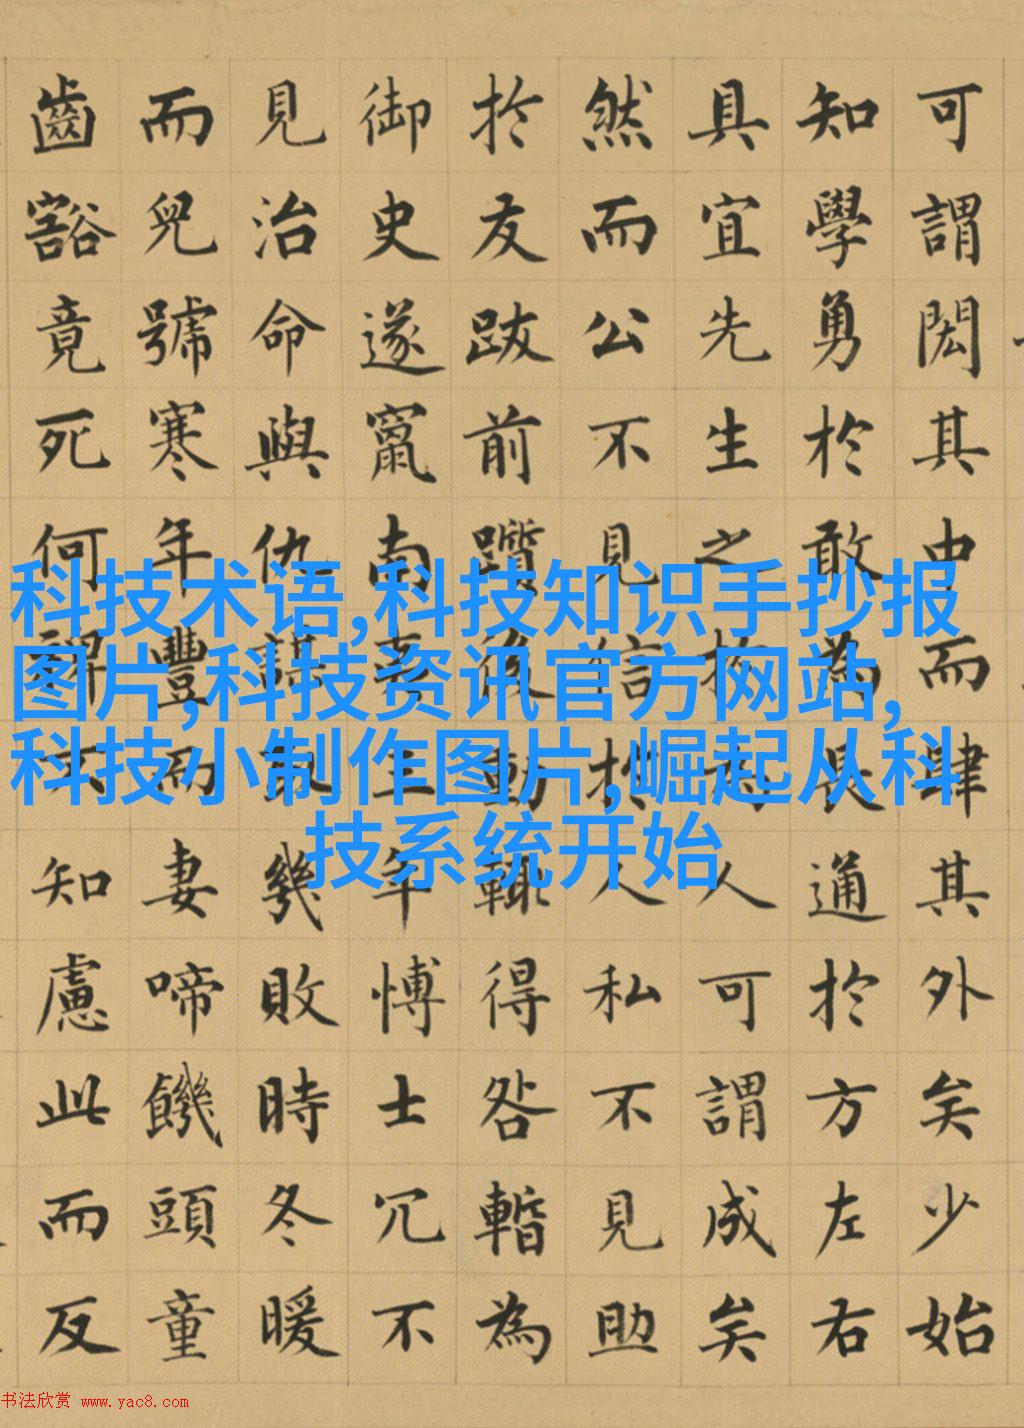 可謂閎其中而肆其外矣少始
知學勇於敢為長通於方左右
具宜先生之於為人可謂成矣
然而公不見信於人私不見助
於友跋前躓後動輒得咎暫為
御史遂竄南夷三年愽士冗不
見治命與仇謀取幾敗時冬暖
而兒號寒年豐而妻啼饑頭童
齒豁竟死何裨不知慮此而反
科技术语,科技知识手抄报
图片,科技资讯官方网站,
科技小制作图片,崛起从科
技系统开始
书法欣赏 www.yac8.com